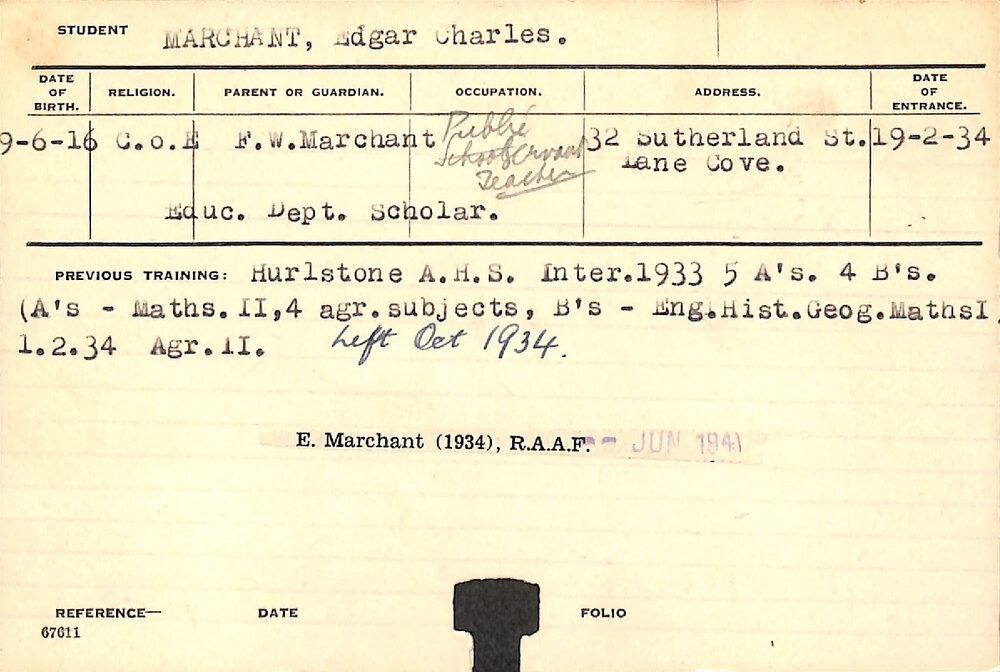 STUDENT MARCHANT, Edgar Charles.
DATE OF BIRTH. RELIGION. PARENT OR GUARDIAN. OCCUPATION. ADDRESS. DATE OF ENTRANCE.
9-6-16 C.o.E F.W.Marchant Public School Servant Teacher 32 Sutherland St. 19-2-34
Lane Cove.
Educ. Dept. Scholar.
PREVIOUS TRAINING: Hurlstone A.H.S. Inter.1933 5 A's. 4 B's.
(A's - Maths.II,4 agr.subjects, B's - Eng.Hist.Geog.MathsI.
1.2.34 Agr.II. Left Oct 1934.
E. Marchant (1934), R.A.A.F. - JUN 1941
REFERENCE— DATE FOLIO
67611